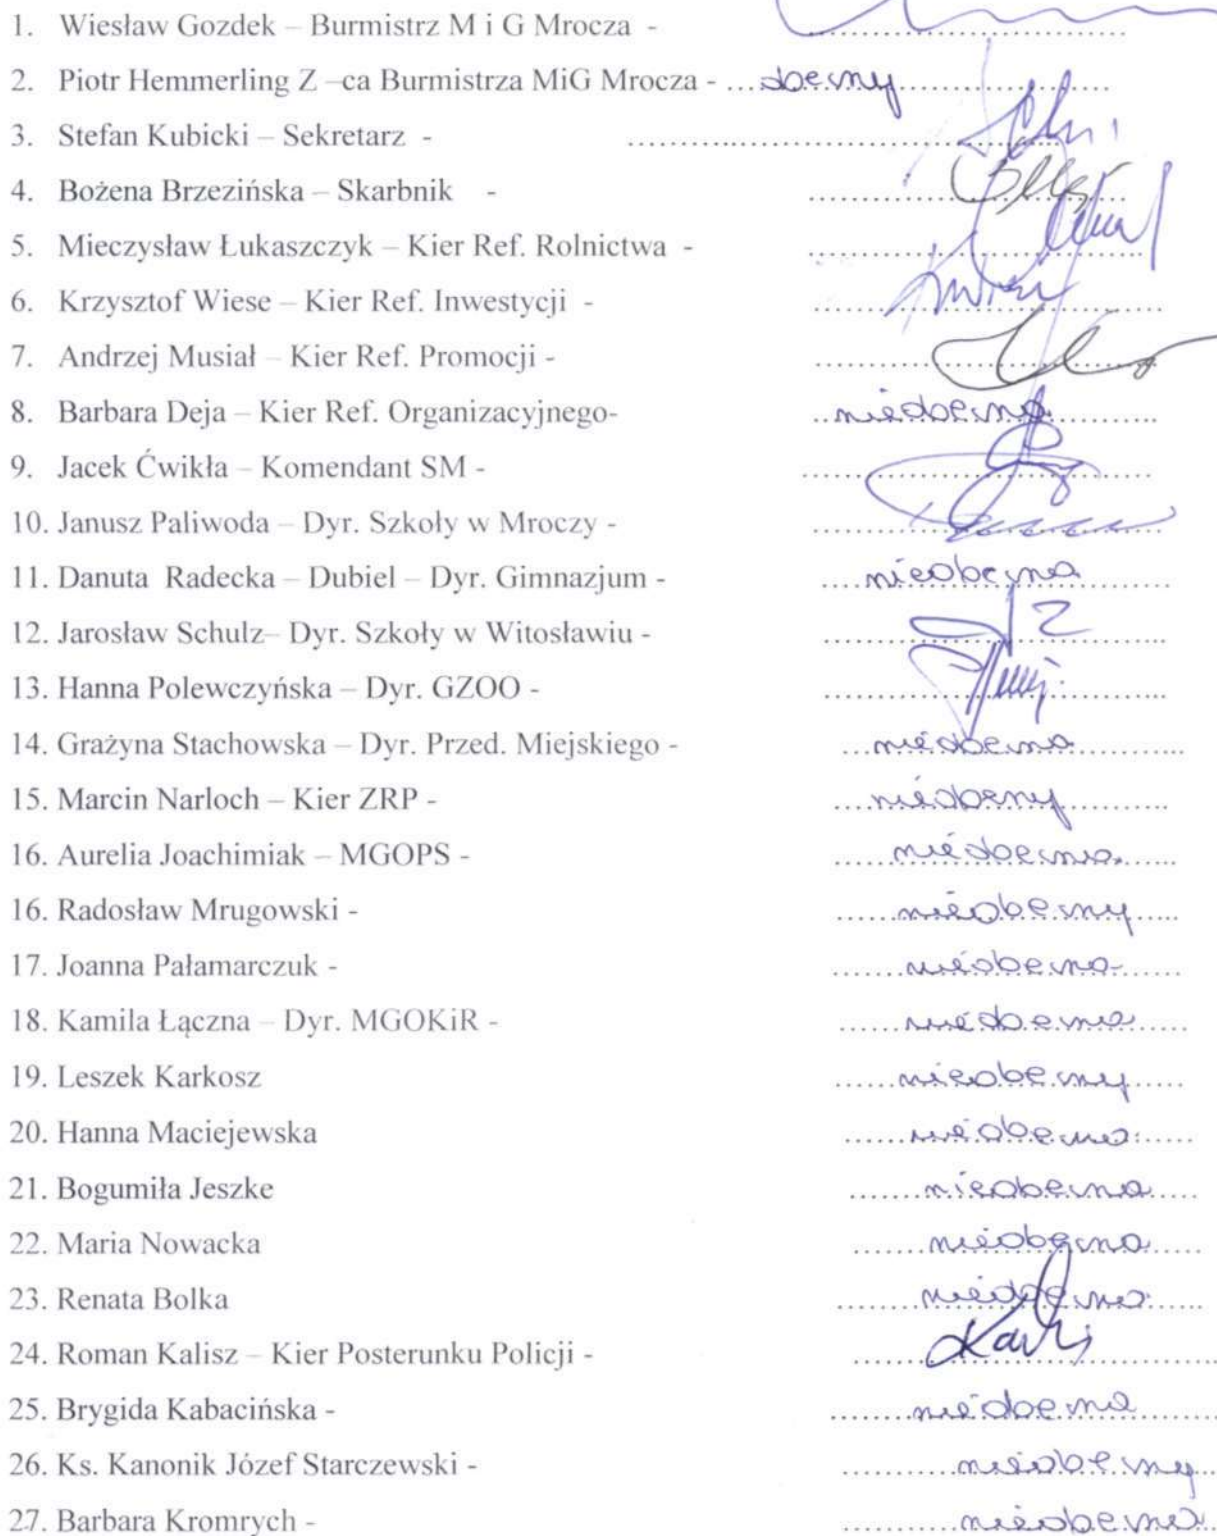 1. Wiesław Gozdek – Burmistrz M i G Mrocza - ..........
2. Piotr Hemmerling Z –ca Burmistrza MiG Mrocza - ... obecny ..........
3. Stefan Kubicki – Sekretarz - ..........
4. Bożena Brzezińska – Skarbnik - ..........
5. Mieczysław Łukaszczyk – Kier Ref. Rolnictwa - ..........
6. Krzysztof Wiese – Kier Ref. Inwestycji - ..........
7. Andrzej Musiał – Kier Ref. Promocji - ..........
8. Barbara Deja – Kier Ref. Organizacyjnego- .. nieobecna ..........
9. Jacek Ćwikła – Komendant SM - ..........
10. Janusz Paliwoda – Dyr. Szkoły w Mroczy - ..........
11. Danuta Radecka – Dubiel – Dyr. Gimnazjum - .... nieobecna ..........
12. Jarosław Schulz– Dyr. Szkoły w Witosławiu - ..........
13. Hanna Polewczyńska – Dyr. GZOO - ..........
14. Grażyna Stachowska – Dyr. Przed. Miejskiego - ... nieobecna ..........
15. Marcin Narloch – Kier ZRP - .... nieobecny ..........
16. Aurelia Joachimiak – MGOPS - ..... nieobecna ......
16. Radosław Mrugowski - ...... nieobecny .....
17. Joanna Pałamarczuk - ...... nieobecna ......
18. Kamila Łączna – Dyr. MGOKiR - ...... nieobecna .....
19. Leszek Karkosz ...... nieobecny .....
20. Hanna Maciejewska ...... nieobecna ......
21. Bogumiła Jeszke ....... nieobecna .....
22. Maria Nowacka ....... nieobecna .....
23. Renata Bolka ........ nieobecna ......
24. Roman Kalisz – Kier Posterunku Policji - ..........
25. Brygida Kabacińska - ........ nieobecna ........
26. Ks. Kanonik Józef Starczewski - ........... nieobecny ...
27. Barbara Kromrych - ........... nieobecna